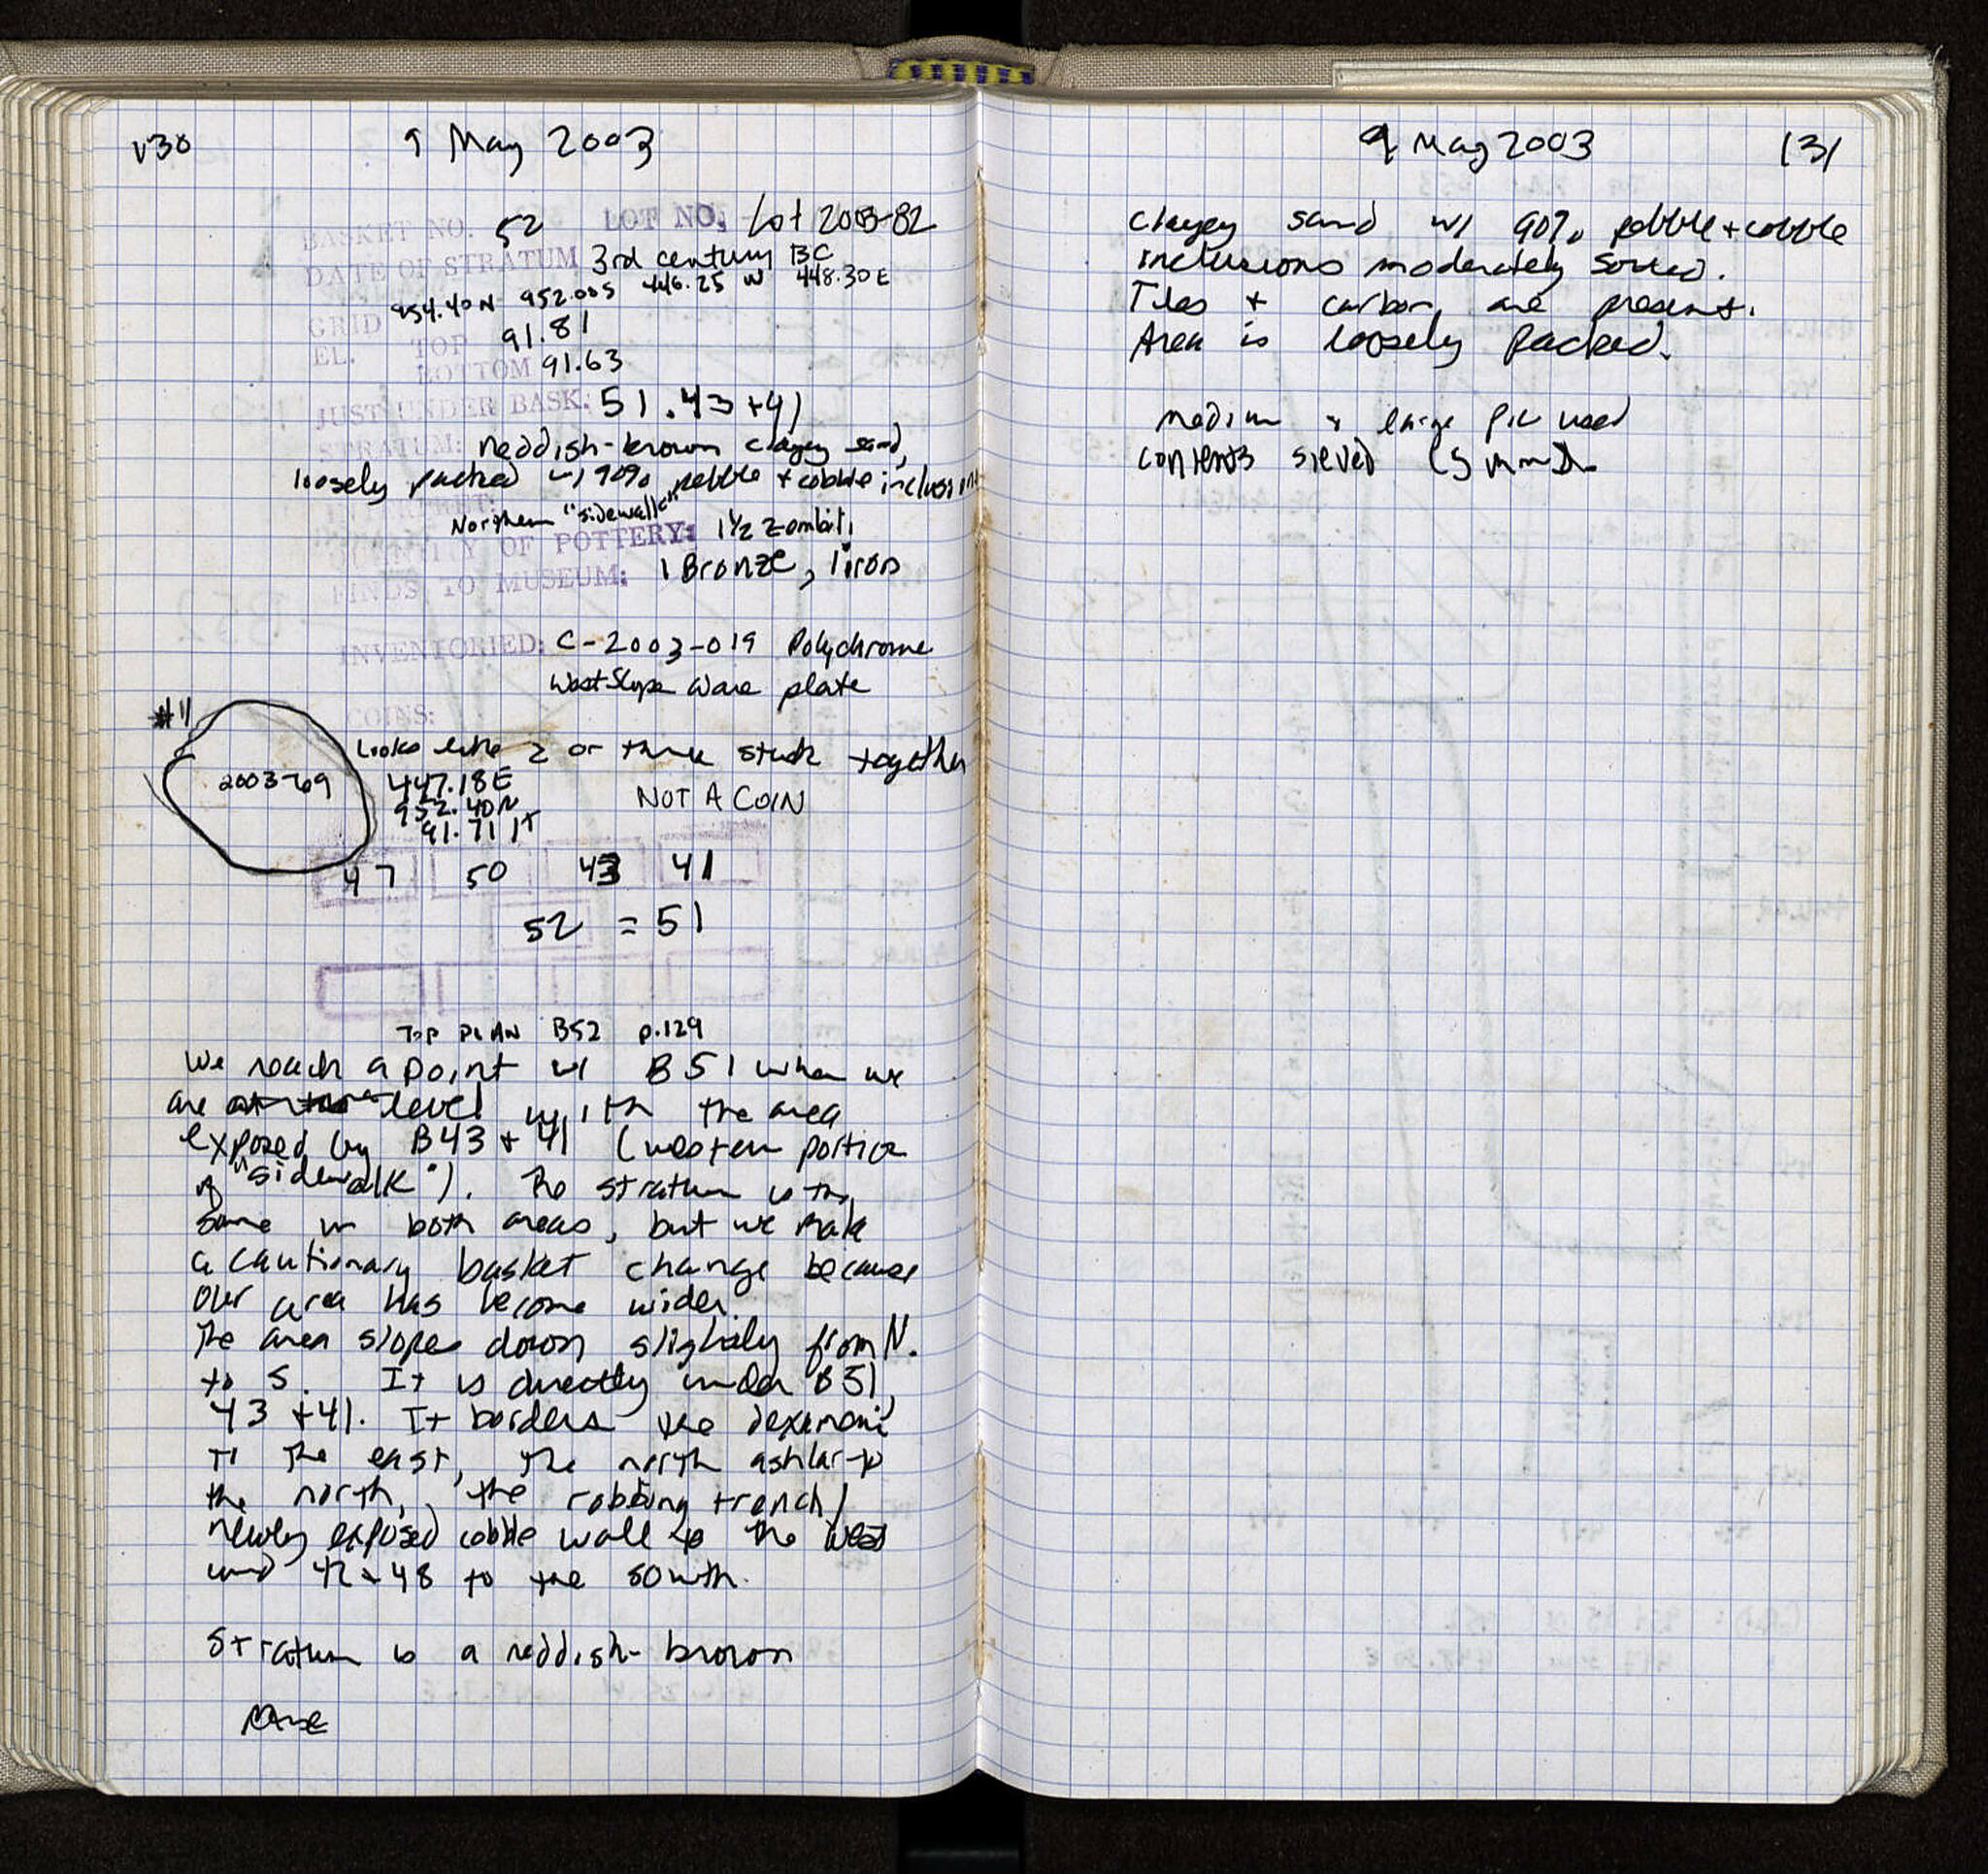 130 9 May 2003
BASKET NO. 52 LOT NO. Lot 2003-82
DATE OF STRATUM 3rd century BC
GRID 954.40N 952.00S 446.25 W 448.30E
EL. TOP 91.81
BOTTOM 91.63
JUST UNDER BASK: 51, 43 + 41
STRATUM: Reddish-brown clayey sand,
loosely packed w/ 90% pebble + cobble inclusions
INTERPRET: Northern "sidewalk"
QUANTITY OF POTTERY: 1 1/2 zembili
FINDS TO MUSEUM: 1 Bronze, 1 iron
INVENTORIED: C-2003-019 Polychrome
West Slope Ware plate
COINS:
#11
Looks like 2 or three stuck together
2003-769 447.18E
952.40N NOT A COIN
91.71
47 50 43 41
52 = 51
TOP PLAN B52 p.129
We reach a point w/ B51 when we
are level with the area
exposed by B43 + 41 (western portion
of "sidewalk"). The stratum is the
same in both areas, but we make
a cautionary basket change because
our area has become wider.
The area slopes down slightly from N.
to S. It is directly under B51,
43 + 41. It borders the dexameni
to the east, the north ashlar to
the north, the robbing trench/
newly exposed cobble wall to the west
and 42 + 48 to the south.
Stratum is a reddish-brown
9 May 2003 131
clayey sand w/ 90% pebble + cobble
inclusions moderately sorted.
Tiles + carbon are present.
Area is loosely packed.
medium + large pic used
contents sieved (5 mm)